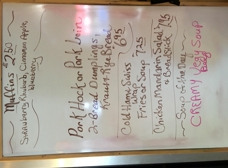 Muffins $2.50
Strawberry Rhubarb, Cinnamon Apple,
Blueberry
Pork Hock or Pork Loin
2-Bread Dumplings,
Kraut, Rye Bread
$6.95
Cold Ham & Swiss
Wrap
Fries or Soup 7.25
Chicken Mandarin Salad
& Breadstick
Soup of the Day
CREAMY Vegy Soup